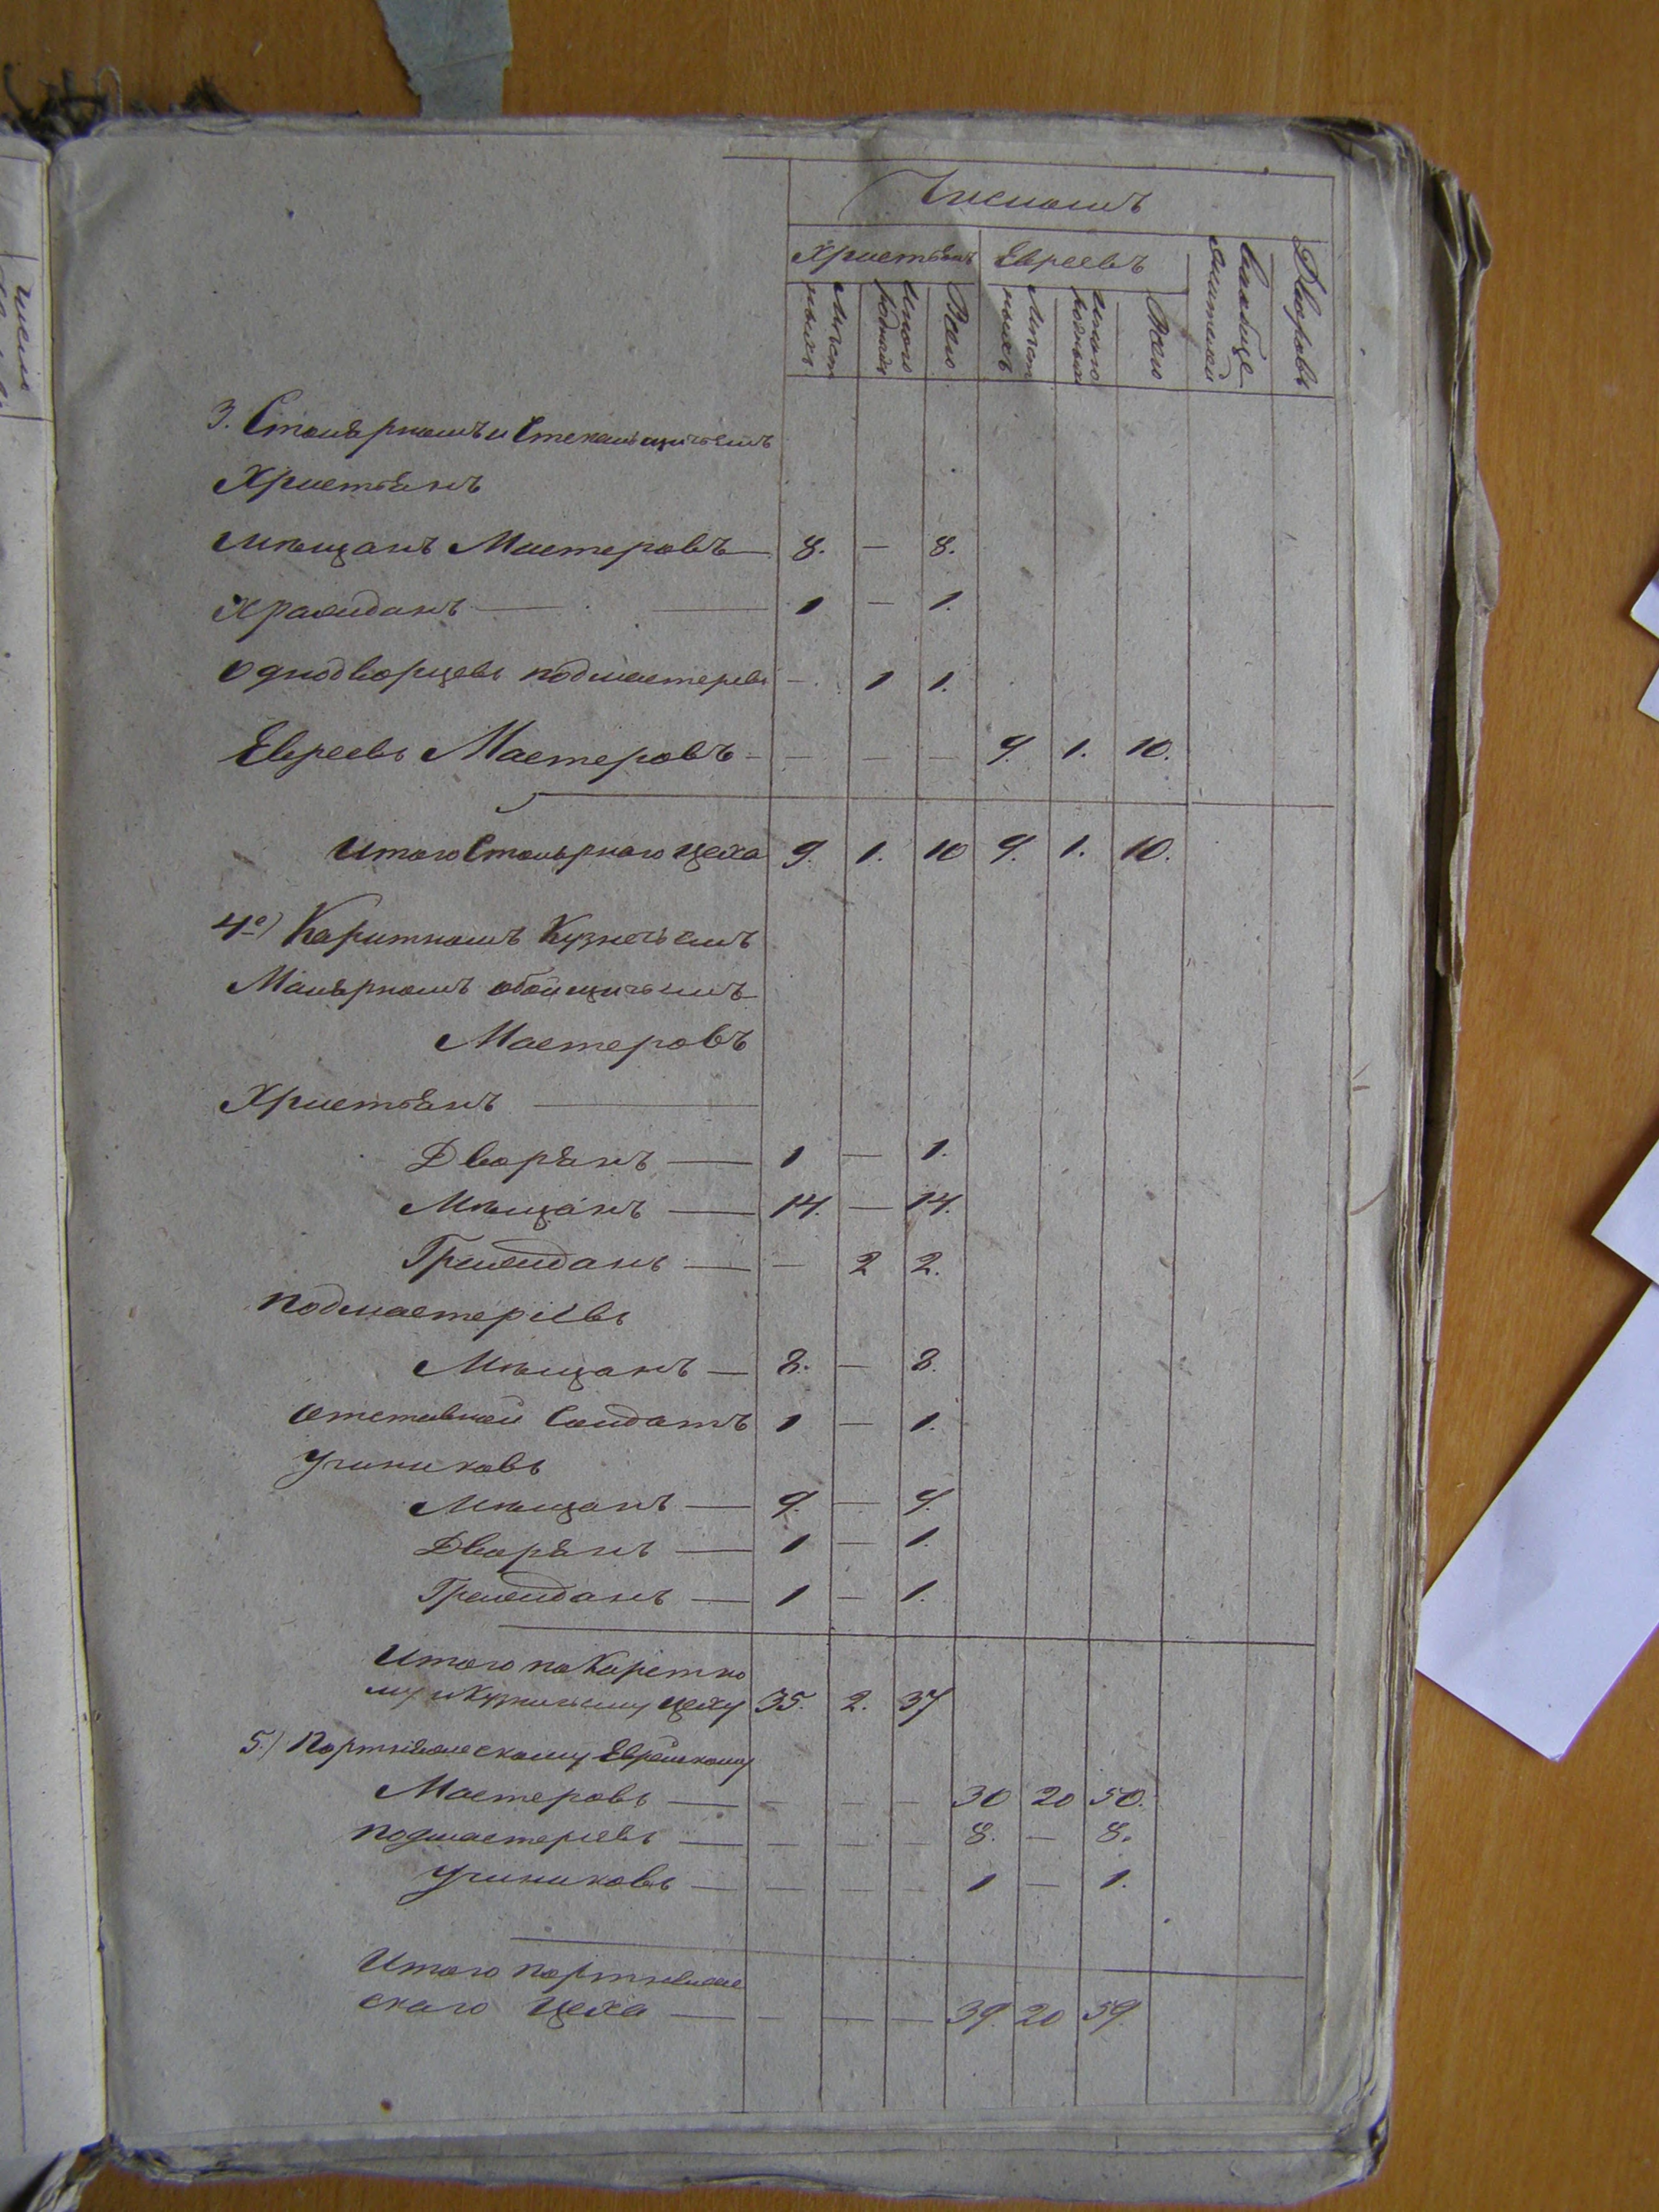 Числомъ
Христіянъ Евреевъ
Мѣстныхъ Иногородныхъ Всего Мѣстныхъ Иногородныхъ Всего Дворовъ
3. Столярномъ и Стекольщичьемъ
Христіянъ
Мѣщанъ Мастеровъ 8. — 8.
Гражданъ — 1 — 1.
Однодворцевъ подмастерьевъ — 1 1.
Евреевъ Мастеровъ — — — — 9. 1. 10.
Итого Столярнаго цеха 9. 1. 10 9. 1. 10.
4е) Каритномъ Кузнечьемъ
Малярномъ обойщичьемъ
Мастеровъ
Христіянъ —
Дворянъ — 1 — 1.
Мѣщанъ — 14. — 14.
Гражданъ — — 2 2.
Подмастеріевъ
Мѣщанъ — 8. — 8.
Отставной Солдатъ 1 — 1.
Учиниковъ
Мѣщанъ — 9. — 9.
Дворянъ — 1 — 1.
Гражданъ — 1 — 1.
Итого по Каретно
му и Кузнечьему цеху 35. 2. 37
5.) Портняжескому Еврейскому
Мастеровъ — — — — 30 20 50.
Подмастеріевъ — — — — 8. — 8.
Учиниковъ — — — — 1 — 1.
Итого Портняже
скаго Цеха — — — — 39. 20 59.